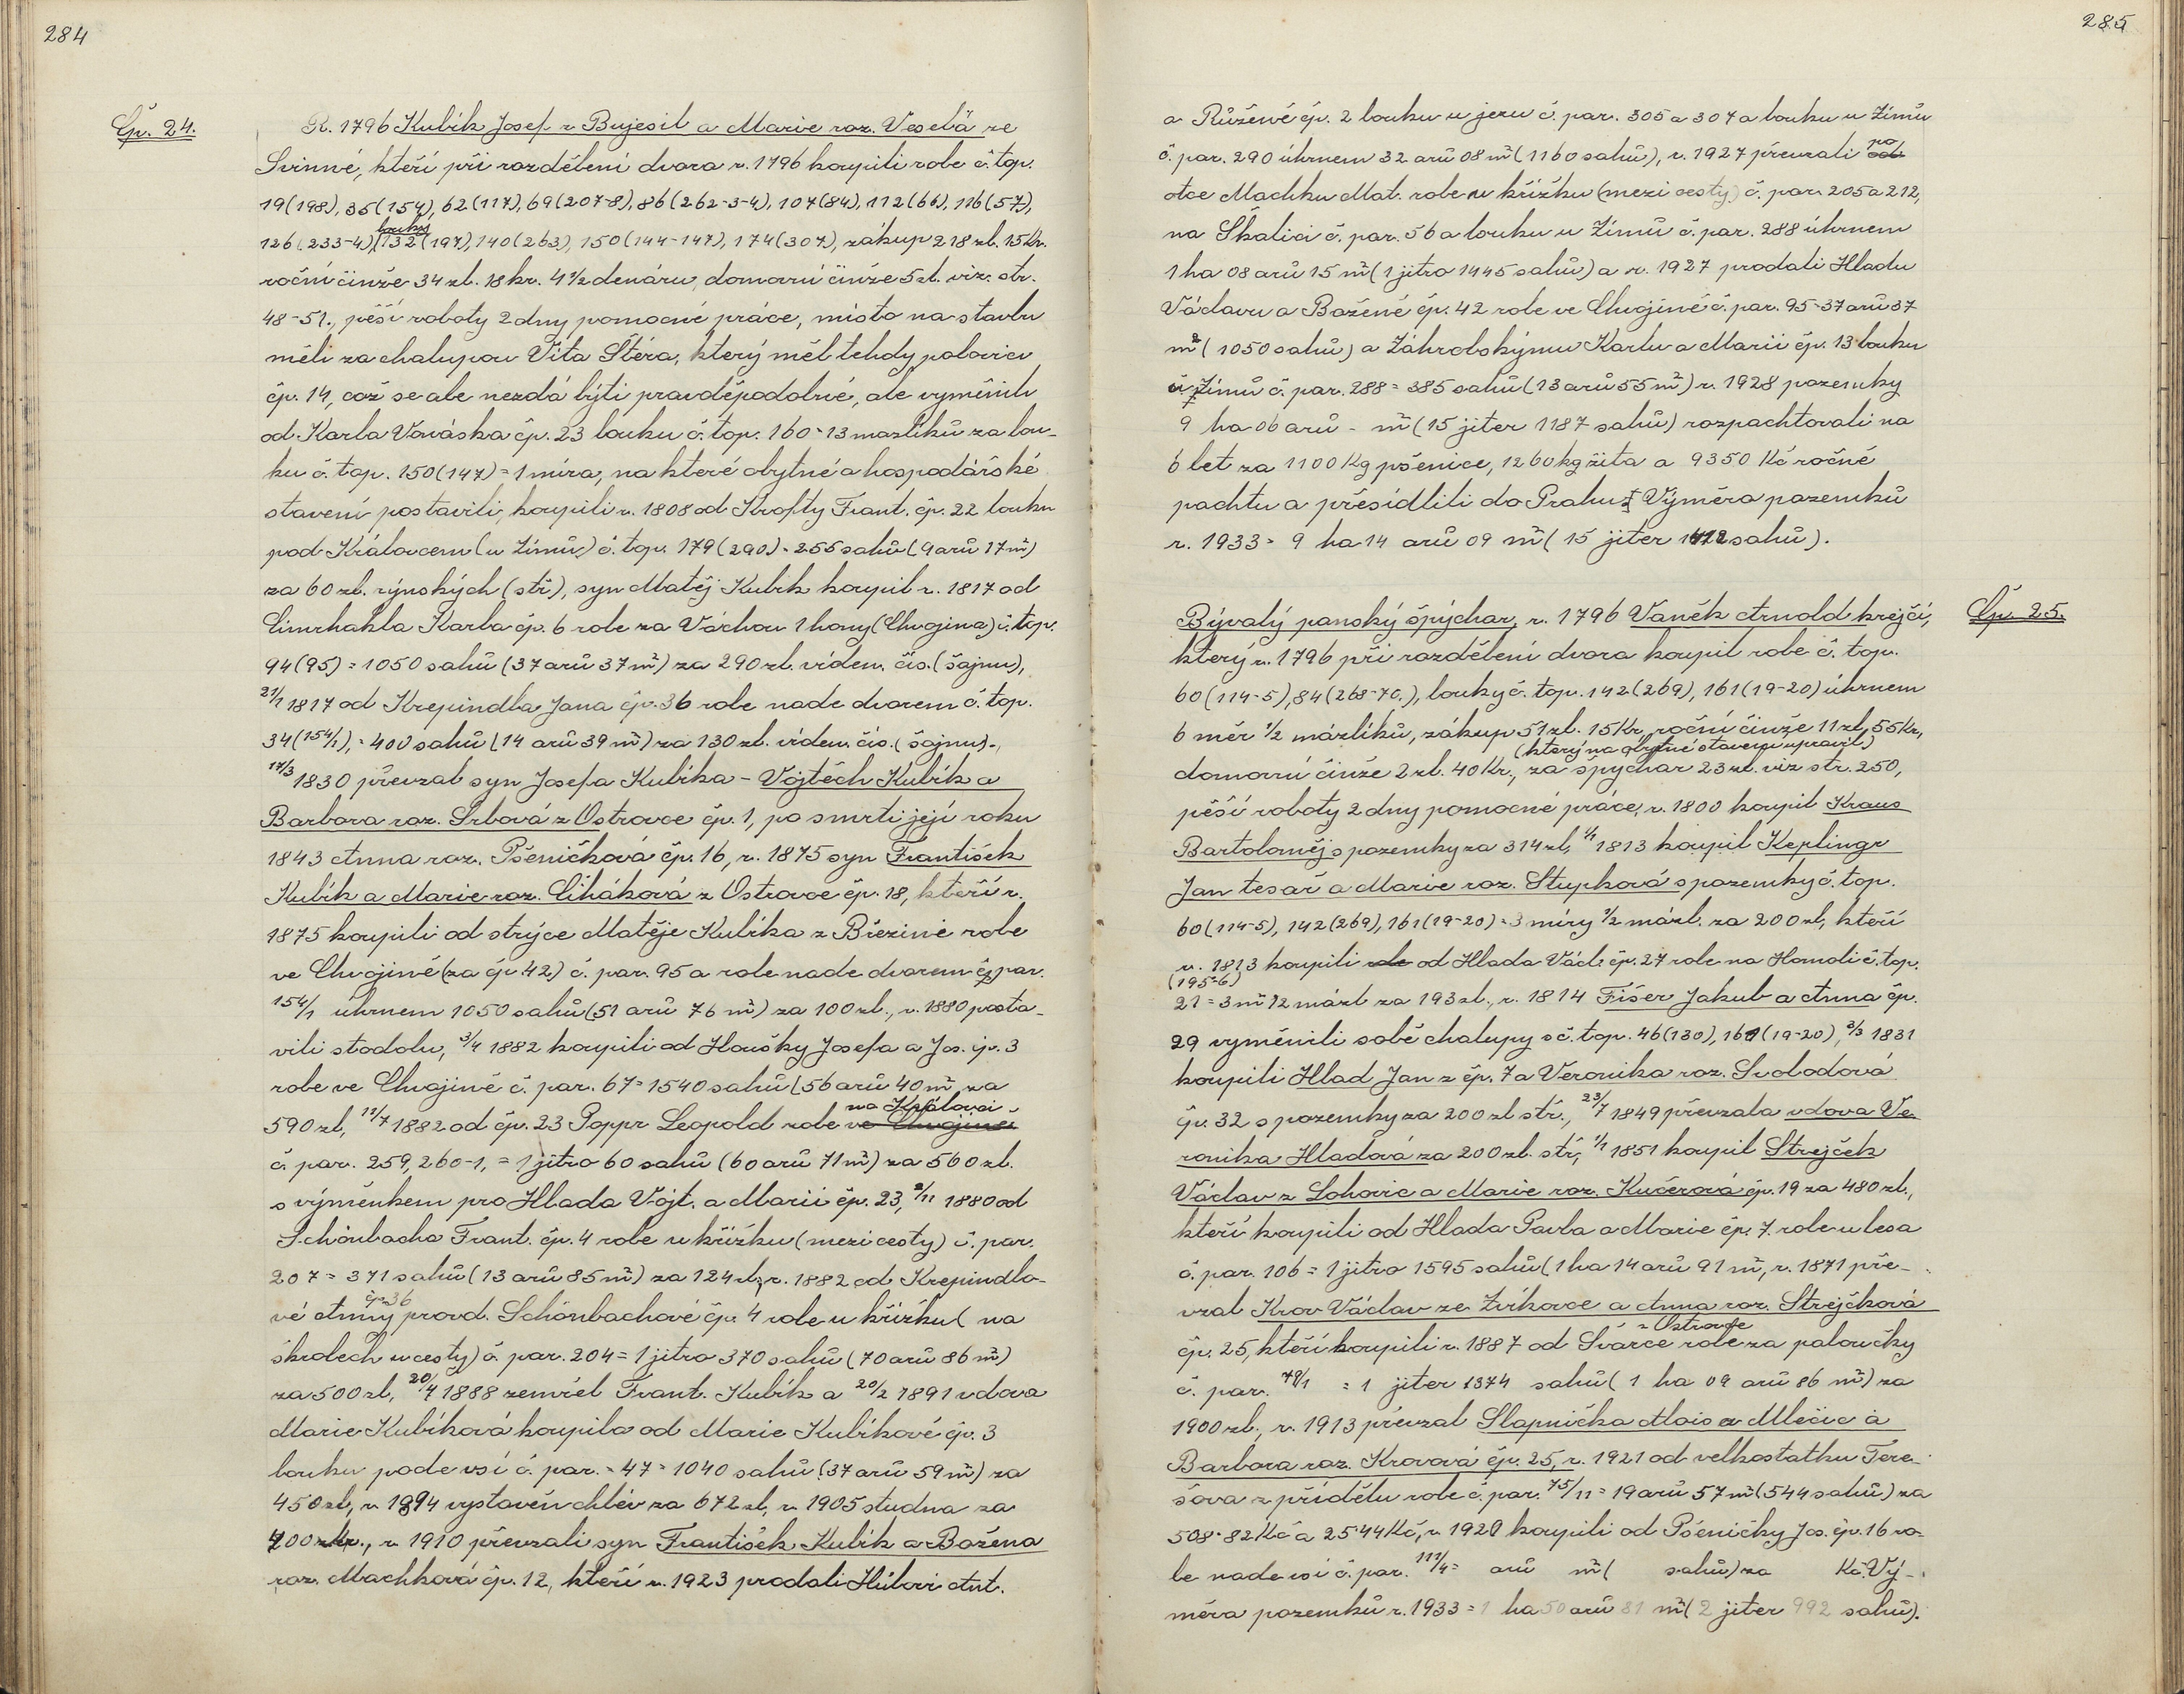 284
Čp. 24.
R. 1796 Kubík Josef z Bujesil a Marie roz. Veselá ze
Svinné, kteří při rozdělení dvora r. 1796 koupili role č. top.
19(198), 35(154), 62(117), 69(207-8), 86(262-3-4), 107(84), 112(66), 116(57),
louky
126(233-4), 132(197), 140(263), 150(144-147), 174(307), zákup 218 zl. 15 Kr.
roční činže 34 zl. 18 kr. 4 1/2 denáru, domovní činže 5 zl. viz. str.
48-51., pěší roboty 2 dny pomocné práce, místo na stavbu
měli za chalupou Víta Stěra, který měl tehdy polovici
čp. 14, což se ale nezdá býti pravděpodobné, ale vyměnili
od Karla Vováska čp. 23 louku č. top. 160 - 13 mazlíků za lou-
ku č. top. 150(147) = 1 míra, na které obytné a hospodářské
stavení postavili, koupili r. 1808 od Krofty Frant. čp. 22 louku
pod Královcem (u Zímů) č. top. 179 (290) - 255 sahů (9 arů 17 m²)
za 60 zl. rýnských (stř), syn Matěj Kubík koupil r. 1817 od
Cimrhakla Karla čp. 6 role za Váchou 1 hony (Chvojina) č. top.
94(95) = 1050 sahů (37 arů 37 m²) za 290 zl. víden. čís. (šajnu),
21/1 1817 od Krepindla Jana čp. 36 role nade dvorem č. top.
34(154/1), = 400 sahů (14 arů 39 m²) za 130 zl. víden. čís. (šajnu).,
17/3 1830 převzal syn Josefa Kubíka - Vojtěch Kubík a
Barbora roz. Srbová z Ostrovce čp. 1, po smrti její roku
1843 Anna roz. Pšeničková čp. 16, r. 1875 syn František
Kubík a Marie roz. Ciháková z Ostrovce čp. 18, kteří r.
1875 koupili od strýce Matěje Kubíka z Březiné role
ve Chvojině (za čp. 42) č. par. 95 a role nade dvorem č. par.
154/1 úhrnem 1050 sahů (51 arů 76 m²) za 100 zl., r. 1880 posta-
vili stodolu, 3/4 1882 koupili od Houšky Josefa a Jos. čp. 3
role ve Chvojině č. par. 67 = 1540 sahů (56 arů 40 m² za
na Královci
590 zl, 11/7 1882 od čp. 23 Poppr Leopold role ve Chvojině
č. par. 259, 260-1, = 1 jitro 60 sahů (60 arů 71 m²) za 560 zl.
s výměnkem pro Hlada Vojt. a Marii čp. 23, 2/11 1880 od
Schönbacha Frant. čp. 4 role u křížku (mezi cesty) č. par.
207 = 371 sahů (13 arů 85 m²) za 124 zl, r. 1882 od Krepindlo-
čp. 36
vé Anny provd. Schönbachové čp. 4 role u křížku (na
školech u cesty) č. par. 204 = 1 jitro 370 sahů (70 arů 86 m²)
za 500 zl, 20/4 1888 zemřel Frant. Kubík a 20/2 1891 vdova
Marie Kubíková koupila od Marie Kubíkové čp. 3
louku pode vsí č. par. - 47 = 1040 sahů (37 arů 59 m²) za
450 zl, r. 1894 vystavěn chlév za 672 zl, r. 1905 studna za
400 kr., r. 1910 převzali syn František Kubík a Božena
roz. Machková čp. 12, kteří r. 1923 prodali Hůlovi Ant.
285
a Růženě čp. 2 louku u jezu č. par. 305 a 307 a louku u Zímů
č. par. 290 úhrnem 32 arů 08 m² (1160 sahů), r. 1927 převzali po od
otce Machku Mat. role u křížku (mezi cesty) č. par. 205 a 212,
na Skalici č. par. 56 a louku u Zímů č. par. 288 úhrnem
1 ha 08 arů 15 m² (1 jitro 1445 sahů) a r. 1927 prodali Hladu
Václavu a Boženě čp. 42 role ve Chvojině č. par. 95 - 37 arů 37
m² (1050 sahů) a Záhrobskýmu Karlu a Marii čp. 13 louku
u Zímů č. par. 288 = 385 sahů (13 arů 55 m²) r. 1928 pozemky
9 ha 06 arů - m² (15 jiter 1187 sahů) rozpachtovali na
6 let za 1100 Kg pšenice, 1260 kg žita a 9350 Kč ročně
pachtu a přesídlili do Prahy. Výměra pozemků
r. 1933 = 9 ha 14 arů 09 m² (15 jiter 1412 sahů).
Čp. 25.
Bývalý panský špýchar, r. 1796 Vaněk Arnold krejčí,
který r. 1796 při rozdělení dvora koupil role č. top.
60(114-5), 84(268-70.), louky č. top. 142(269), 161(19-20) úhrnem
6 měr 1/2 mázlíků, zákup 51 zl. 15 Kr, roční činže 11 zl, 55 Kr,
(který na obytné stavení upravil)
domovní činže 2 zl. 40 Kr., za špychar 23 zl. viz str. 250,
pěší roboty 2 dny pomocné práce, r. 1800 koupil Kraus
Bartoloměj s pozemky za 314 zl, 1/1 1813 koupil Keplingr
Jan tesař a Marie roz. Stupková s pozemky č. top.
60(114-5), 142(269), 161(19-20) = 3 míry 1/2 mázl. za 200 zl, kteří
r. 1813 koupili role od Hlada Václ. čp. 27 role na Homoli č. top.
(195-6)
21 = 3 m 12 mázl za 193 zl., r. 1814 Fišer Jakub a Anna čp.
29 vyměnili sobě chalupy s č. top. 46(130), 161(19-20), 2/3 1831
koupili Hlad Jan z čp. 7 a Veronika roz. Svobodová
čp. 32 s pozemky za 200 zl stř., 23/7 1849 převzala vdova Ve
ronika Hladová za 200 zl. stř, 1/1 1851 koupil Strejček
Václav z Lohovic a Marie roz. Kučerová čp. 19 za 480 zl.,
kteří koupili od Hlada Pavla a Marie čp. 7. role u lesa
č. par. 106 = 1 jitro 1595 sahů (1 ha 14 arů 91 m², r. 1871 pře-
vzal Krov Václav ze Zvíkovce a Anna roz. Strejčková
z Ostrovce
čp. 25, kteří koupili r. 1887 od Švárce role za paloučky
č. par. 79/1 = 1 jiter 1374 sahů (1 ha 09 arů 86 m²) za
1900 zl., r. 1913 převzal Slapnička Alois z Mlečic a
Barbora roz. Krovová čp. 25, r. 1921 od velkostatku Tere-
šova z přídělu role č. par. 75/11 = 19 arů 57 m² (544 sahů) za
508·82 Kč a 25·44 Kč, r. 1920 koupili od Pšeničky Jos. čp. 16 ro-
le nade vsí č. par. 111/4 = arů m² ( sahů) za Kč. Vý-
měra pozemků r. 1933 = 1 ha 50 arů 81 m² (2 jiter 992 sahů).